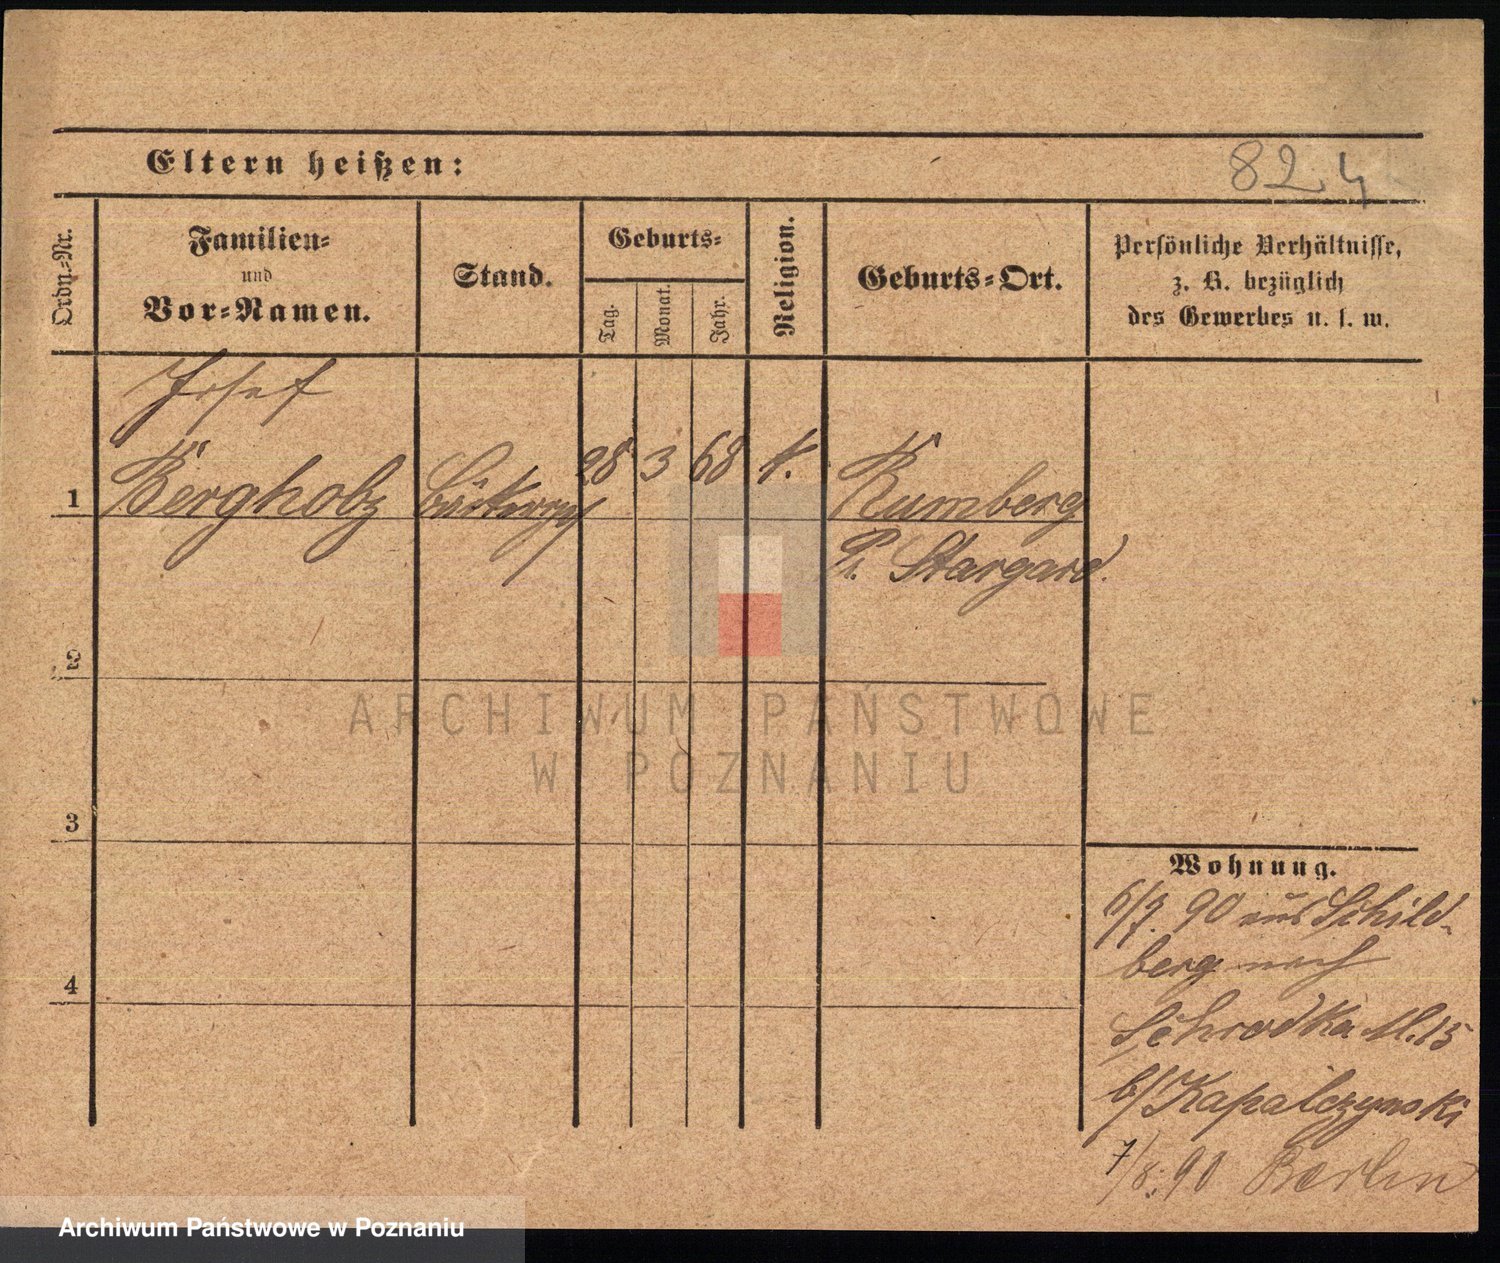 Eltern heißen:
82.4
Ordn.=Nr.
Familien=
und
Vor=Namen.
Stand.
Geburts=
Tag.
Monat.
Jahr.
Religion.
Geburts=Ort.
Persönliche Verhältnisse,
z. B. bezüglich
des Gewerbes u. s. w.
Josef
1 Bergholz 28 3 68 k. Rumberg
Pr. Stargard.
ARCHIWUM PAŃSTWOWE
W POZNANIU
2
3
4
Wohnung.
6/7. 90 aus Schild-
berg nach
Schrodka M. 15
b/ Kapalczynski
7/8. 90 Berlin
Archiwum Państwowe w Poznaniu